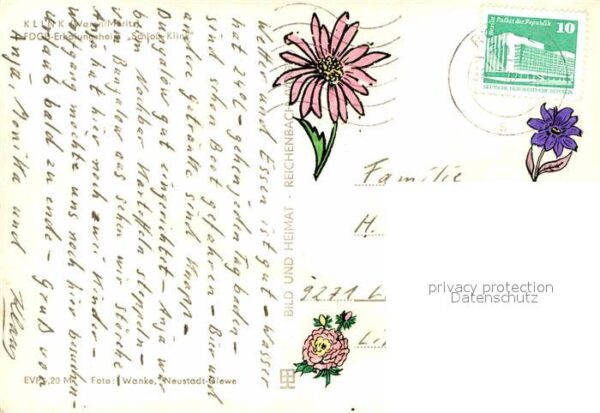 KLINK (Waren/Müritz)
FDGB-Erholungsheim „Schloss Klink“
Wetter und Essen ist gut – Wasser
hat 24°C – gehen jeden Tag baden –
schon Boot gefahren – Bier und
andere Getränke sind knapp –
Bungalow gut eingerichtet – Anja war
beim Kartoffeln stoppeln –
vom Bungalow aus sehen wir Störche –
Anja hat hier noch zwei Kinder –
Wolfgang möchte uns noch hier besuchen –
Urlaub bald zu ende – Gruß von
Anja, Monika und
Klaus
EVP 0,20 M Foto: Wanke, Neustadt-Glewe
BILD UND HEIMAT REICHENBACH
Palast der Republik
10
DEUTSCHE DEMOKRATISCHE REPUBLIK
Familie
H.
9271 L
privacy protection
Datenschutz